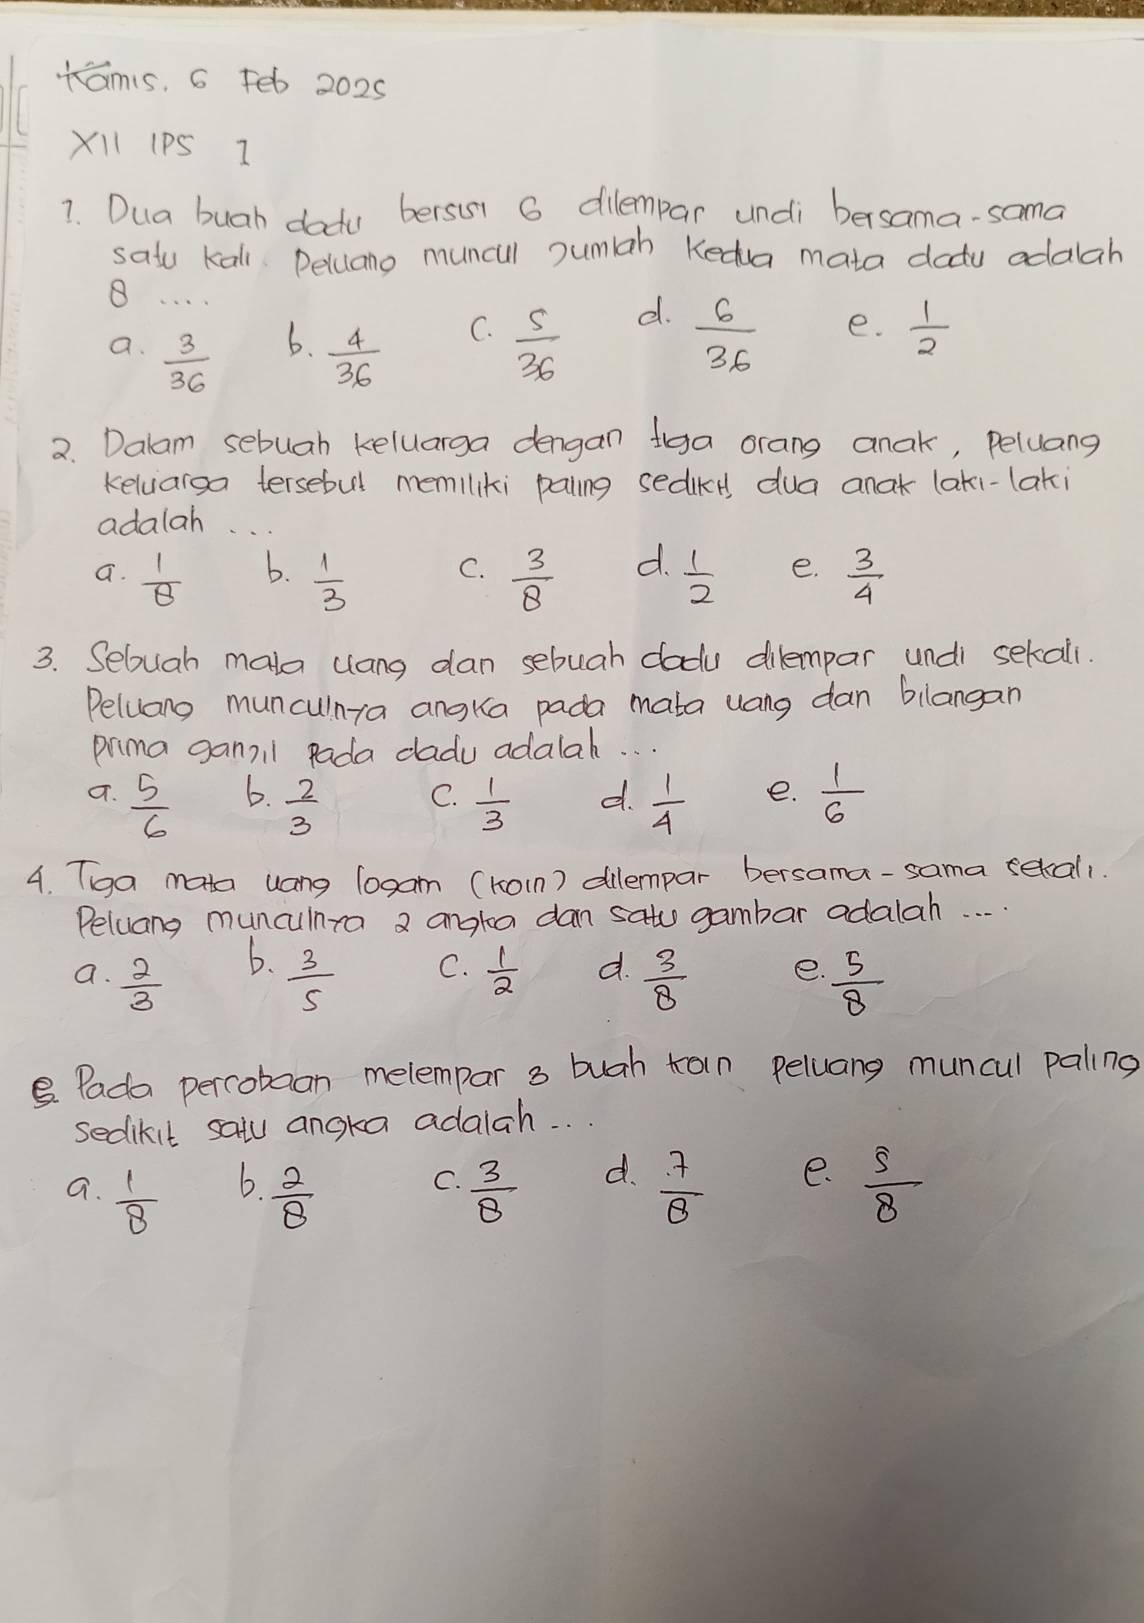 Kamis, 6 Feb 2025
XII IPS 1
1. Dua buah dadu bersisi 6 dilempar undi bersama-sama
satu kali. Peluang muncul jumlah kedua mata dadu adalah
8 ....
a. 3/36 b. 4/36 c. 5/36 d. 6/36 e. 1/2
2. Dalam sebuah keluarga dengan tiga orang anak, peluang
keluarga tersebut memiliki paling sedikit dua anak laki-laki
adalah ...
a. 1/8 b. 1/3 c. 3/8 d. 1/2 e. 3/4
3. Sebuah mata uang dan sebuah dadu dilempar undi sekali.
Peluang munculnya angka pada mata uang dan bilangan
prima ganjil pada dadu adalah ...
a. 5/6 b. 2/3 c. 1/3 d. 1/4 e. 1/6
4. Tiga mata uang logam (koin) dilempar bersama-sama sekali.
Peluang munculnya 2 angka dan satu gambar adalah ....
a. 2/3 b. 3/5 c. 1/2 d. 3/8 e. 5/8
5. Pada percobaan melempar 3 buah koin peluang muncul paling
sedikit satu angka adalah ...
a. 1/8 b. 2/8 c. 3/8 d. 7/8 e. 5/8